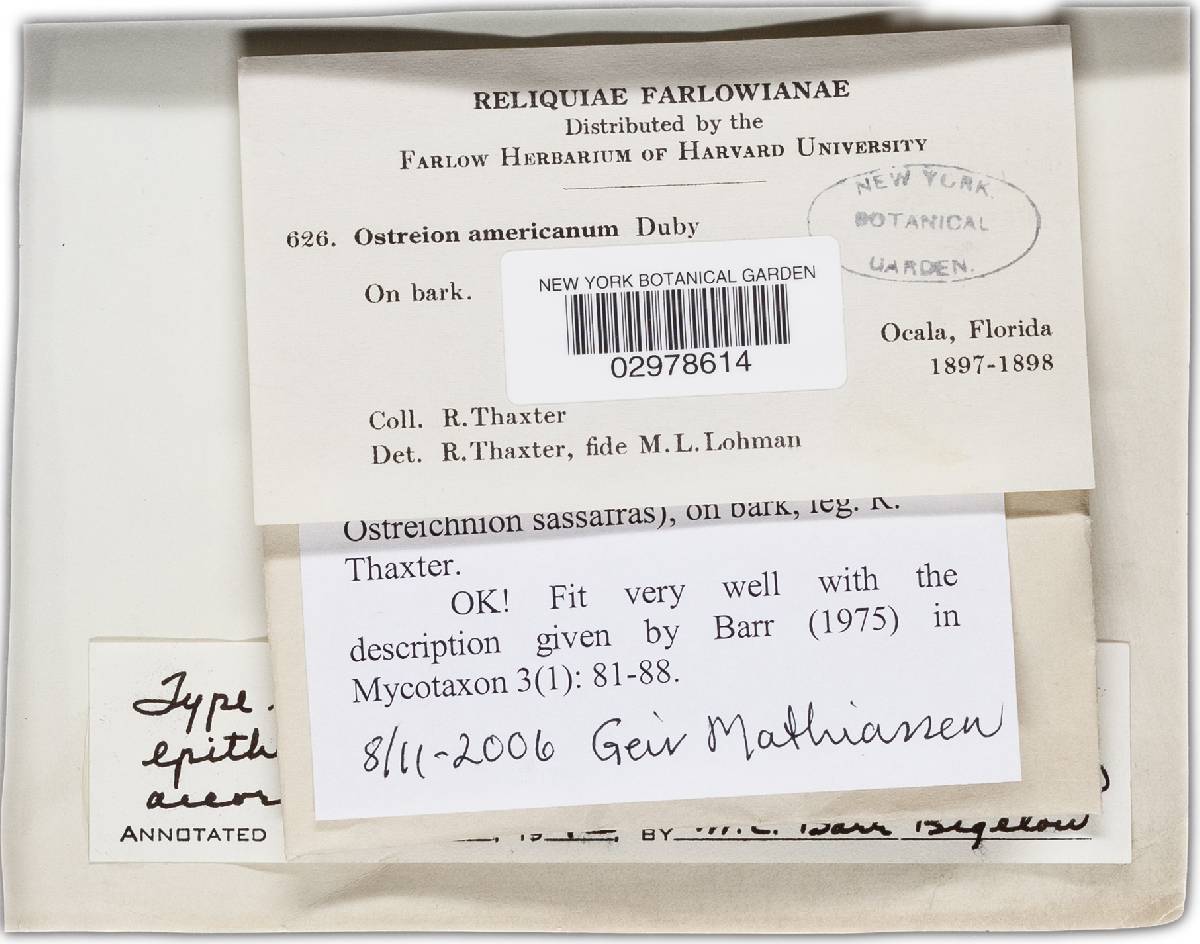 RELIQUIAE FARLOWIANAE
Distributed by the
FARLOW HERBARIUM OF HARVARD UNIVERSITY
NEW YORK
BOTANICAL
GARDEN.
626. Ostreion americanum Duby
On bark.
NEW YORK BOTANICAL GARDEN
02978614
Ocala, Florida
1897-1898
Coll. R.Thaxter
Det. R.Thaxter, fide M.L.Lohman
Ostreichnion sassafras), on bark, leg. R.
Thaxter.
OK! Fit very well with the
description given by Barr (1975) in
Mycotaxon 3(1): 81-88.
8/11-2006 Geir Mathiassen
Type
epith
accor
ANNOTATED BY M.E. Barr Bigelow